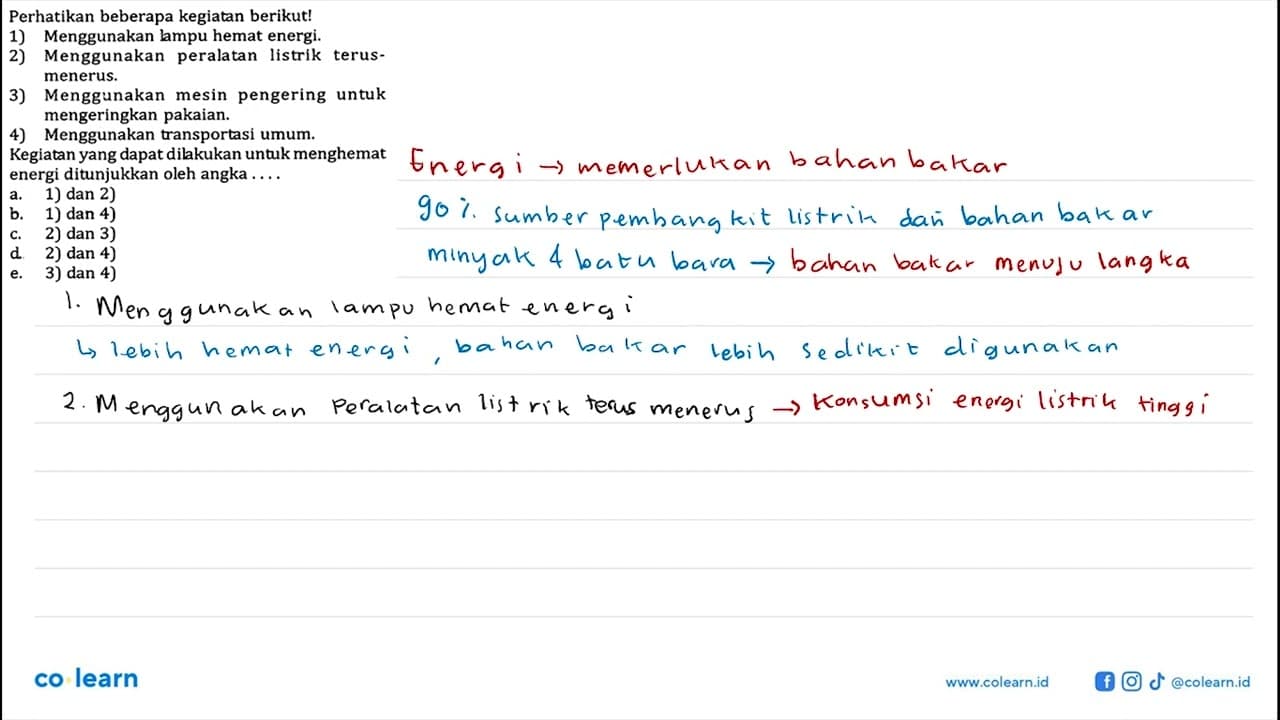 Perhatikan beberapa kegiatan berikut!
1) Menggunakan lampu hemat energi.
2) Menggunakan peralatan listrik terus-
menerus.
3) Menggunakan mesin pengering untuk
mengeringkan pakaian.
4) Menggunakan transportasi umum.
Kegiatan yang dapat dilakukan untuk menghemat
energi ditunjukkan oleh angka . . . .
a. 1) dan 2)
b. 1) dan 4)
c. 2) dan 3)
d. 2) dan 4)
e. 3) dan 4)
Energi → memerlukan bahan bakar
90 %. sumber pembangkit listrik dari bahan bakar
minyak & batu bara → bahan bakar menuju langka
1. Menggunakan lampu hemat energi
↳ lebih hemat energi, bahan bakar lebih sedikit digunakan
2. Menggunakan Peralatan listrik terus menerus → Konsumsi energi listrik tinggi
co learn
www.colearn.id
@colearn.id